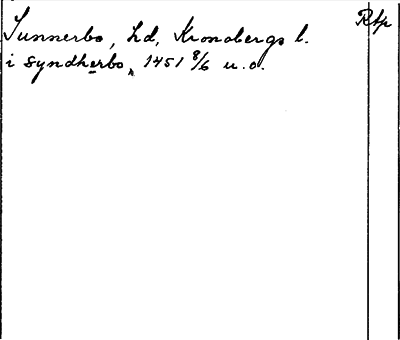 Sunnerbo, hd, Kronobergs l. Rtp
i syndherbo, 1451 8/6 u.o.